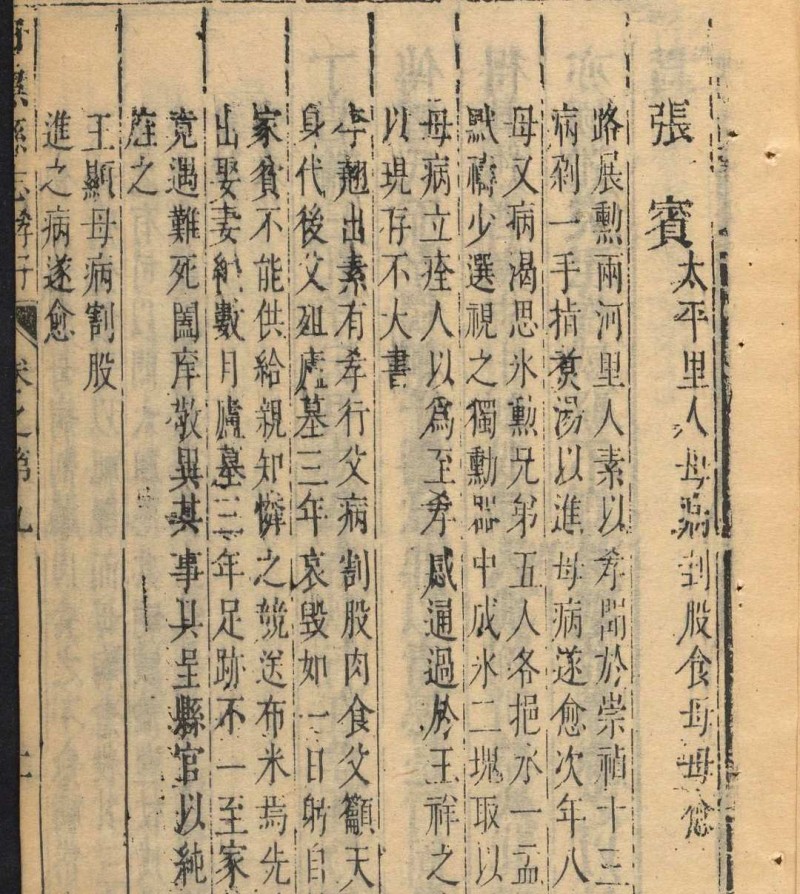 張賓 太平里人母病刲股食母母愈
路展勲兩河里人素以孝聞於崇禎十三
病剁一手指煑湯以進母病遂愈次年八
母又病渴思氷勲兄弟五人各挹水一盂
默禱少選視之獨勲器中成氷二塊取以
母病立痊人以為至孝感通過於王祥之
以現存不大書
李翹出素有孝行父病割股肉食父籲天
身代後父殂廬墓三年哀毀如一日躬自
家貧不能供給親知憐之競送布米焉先
出娶妻纔數月廬墓三年足跡不一至家
竟遇難死闔庠敬異其事具呈縣官以純
旌之
王顯母病割股
進之病遂愈
縣志 孝子 卷之第九